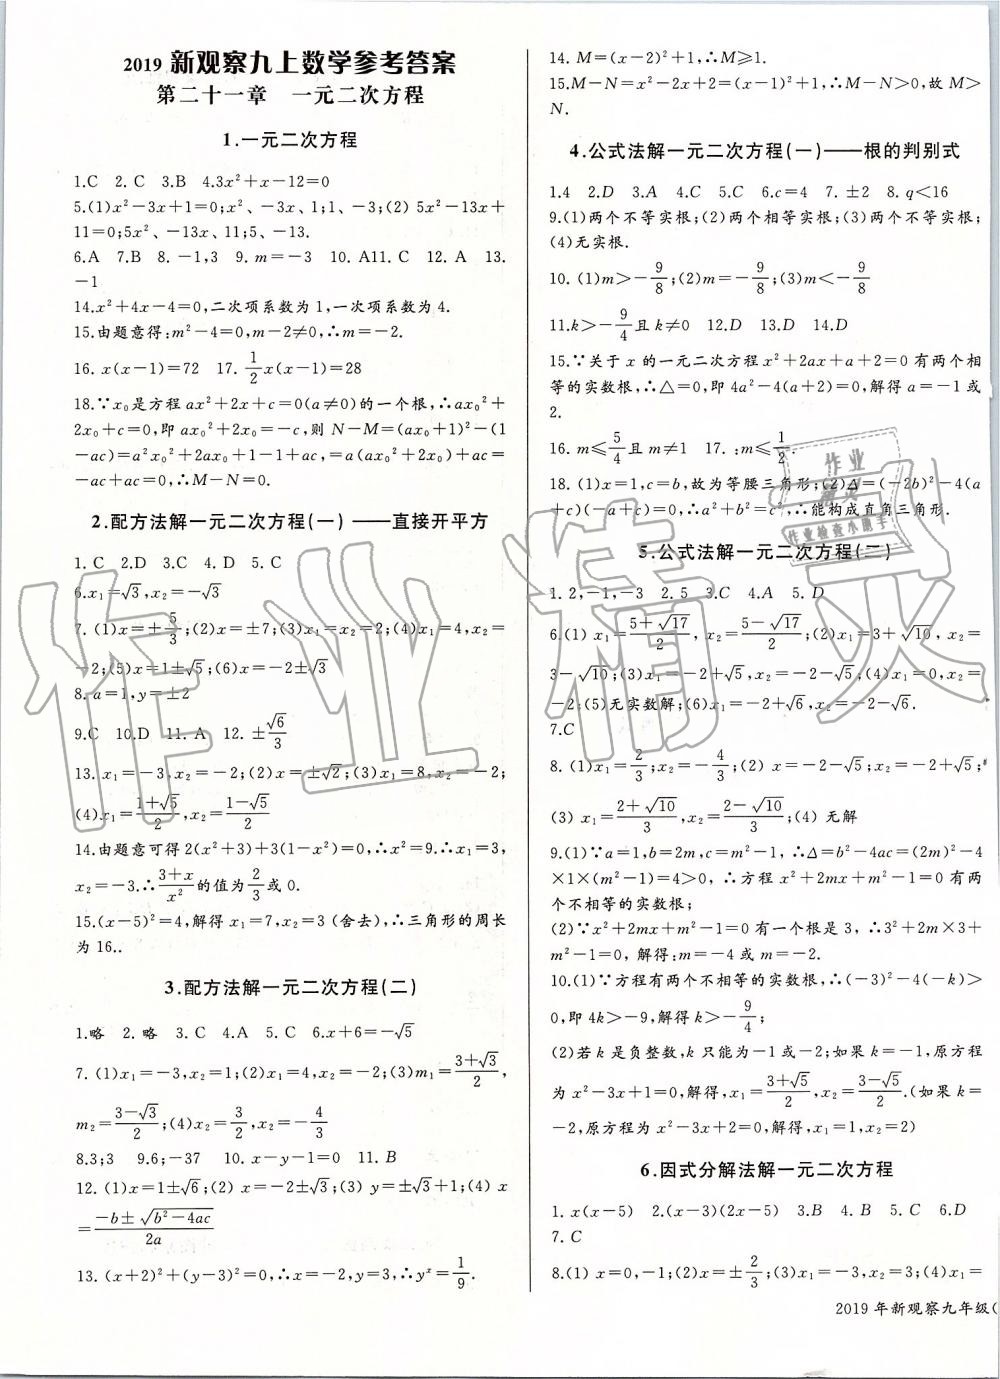 2019 新观察九上数学参考答案
第二十一章 一元二次方程
1.一元二次方程
1.C 2.C 3.B 4.3x²+x-12=0
5.(1)x²-3x+1=0;x²、-3x、1;1、-3;(2) 5x²-13x+
11=0;5x²、-13x、11;5、-13.
6.A 7.B 8.-1,3 9.m=-3 10.A11.C 12.A 13.
-1
14.x²+4x-4=0,二次项系数为1,一次项系数为4.
15.由题意得:m²-4=0,m-2≠0,∴m=-2.
16. x(x-1)=72 17. 1/2x(x-1)=28
18.∵x₀是方程ax²+2x+c=0(a≠0)的一个根,∴ax₀²+
2x₀+c=0,即ax₀²+2x₀=-c,则N-M=(ax₀+1)²-(1
-ac)=a²x₀²+2ax₀+1-1+ac,=a(ax₀²+2x₀)+ac=
-ac+ac=0,∴M-N=0.
2.配方法解一元二次方程(一)——直接开平方
1.C 2.D 3.C 4.D 5.C
6.x₁=√3,x₂=-√3
7. (1)x=±5/3;(2)x=±7;(3)x₁=x₂=2;(4)x₁=4,x₂=
-2;(5)x=1±√5;(6)x=-2±√3
8.a=1,y=±2
9.C 10.D 11.A 12.±√6/3
13.x₁=-3,x₂=-2;(2)x=±√2;(3)x₁=8,x₂=-2;
(4)x₁=(1+√5)/2,x₂=(1-√5)/2
14.由题意可得2(x²+3)+3(1-x²)=0,∴x²=9.∴x₁=3,
x₂=-3.∴(3+x)/x²的值为2/3或0.
15.(x-5)²=4,解得x₁=7,x₂=3(舍去),∴三角形的周长
为16..
3.配方法解一元二次方程(二)
1.略 2.略 3.C 4.A 5.C 6.x+6=-√5
7. (1)x₁=-3,x₂=1;(2)x₁=4,x₂=-2;(3)m₁=(3+√3)/2,
m₂=(3-√3)/2;(4)x₂=3/2,x₂=-4/3
8.3;3 9.6;-37 10.x-y-1=0 11.B
12. (1)x=1±√6;(2)x=-2±√3;(3) y=±√3+1;(4) x
=(-b±√(b²-4ac))/2a
13. (x+2)²+(y-3)²=0,∴x=-2,y=3,∴yˣ=1/9.
14. M=(x-2)²+1,∴M≥1.
15.M-N=x²-2x+2=(x-1)²+1,∴M-N>0,故M>
N.
4.公式法解一元二次方程(一)——根的判别式
1.4 2.D 3.A 4.C 5.C 6.c=4 7.±2 8.q<16
9.(1)两个不等实根;(2)两个相等实根;(3)两个不等实根;
(4)无实根.
10. (1)m>-9/8;(2)m=-9/8;(3)m<-9/8
11.k>-9/4且k≠0 12.D 13.D 14.D
15.∵关于x的一元二次方程x²+2ax+a+2=0有两个相
等的实数根,∴△=0,即4a²-4(a+2)=0,解得a=-1或
2.
16. m≤5/4且m≠1 17.:m≤1/2.
18. (1)x=1,c=b,故为等腰三角形;(2)Δ=(-2b)²-4(a
+c)(-a+c)=0,∴a²+b²=c²,∴能构成直角三角形.
5.公式法解一元二次方程(二)
1. 2,-1,-3 2. 5 3.C 4.A 5.D
6.(1) x₁=(5+√17)/2,x₂=(5-√17)/2;(2)x₁=3+√10,x₂=
3-√10;(3)x₁=-2+√5,x₂=-2-√5;(4)x₁=0,x₂=
-2;(5)无实数解;(6)x₁=-2+√6,x₂=-2-√6.
7.C
8. (1)x₁=2/3;x₂=-4/3;(2) x=-2-√5;x=-2+√5;
(3) x₁=(2+√10)/3,x₂=(2-√10)/3;(4) 无解
9.(1)∵a=1,b=2m,c=m²-1,∴Δ=b²-4ac=(2m)²-4
×1×(m²-1)=4>0,∴方程x²+2mx+m²-1=0有两
个不相等的实数根;
(2)∵x²+2mx+m²-1=0有一个根是3,∴3²+2m×3+
m²-1=0,解得:m=-4或m=-2.
10.(1)∵方程有两个不相等的实数根,∴(-3)²-4(-k)>
0,即4k>-9,解得k>-9/4;
(2)若k是负整数,k只能为-1或-2;如果k=-1,原方程
为x²-3x+1=0,解得,x₁=(3+√5)/2,x₂=(3-√5)/2.(如果k=
-2,原方程为x²-3x+2=0,解得,x₁=1,x₂=2)
6.因式分解法解一元二次方程
1.x(x-5) 2.(x-3)(2x-5) 3.B 4.B 5.C 6.D
7.C
8.(1) x=0,-1;(2)x=±2/3;(3)x₁=-3,x₂=3;(4)x₁=
2019年新观察九年级(
作业精灵
作业
精灵
作业检查小助手